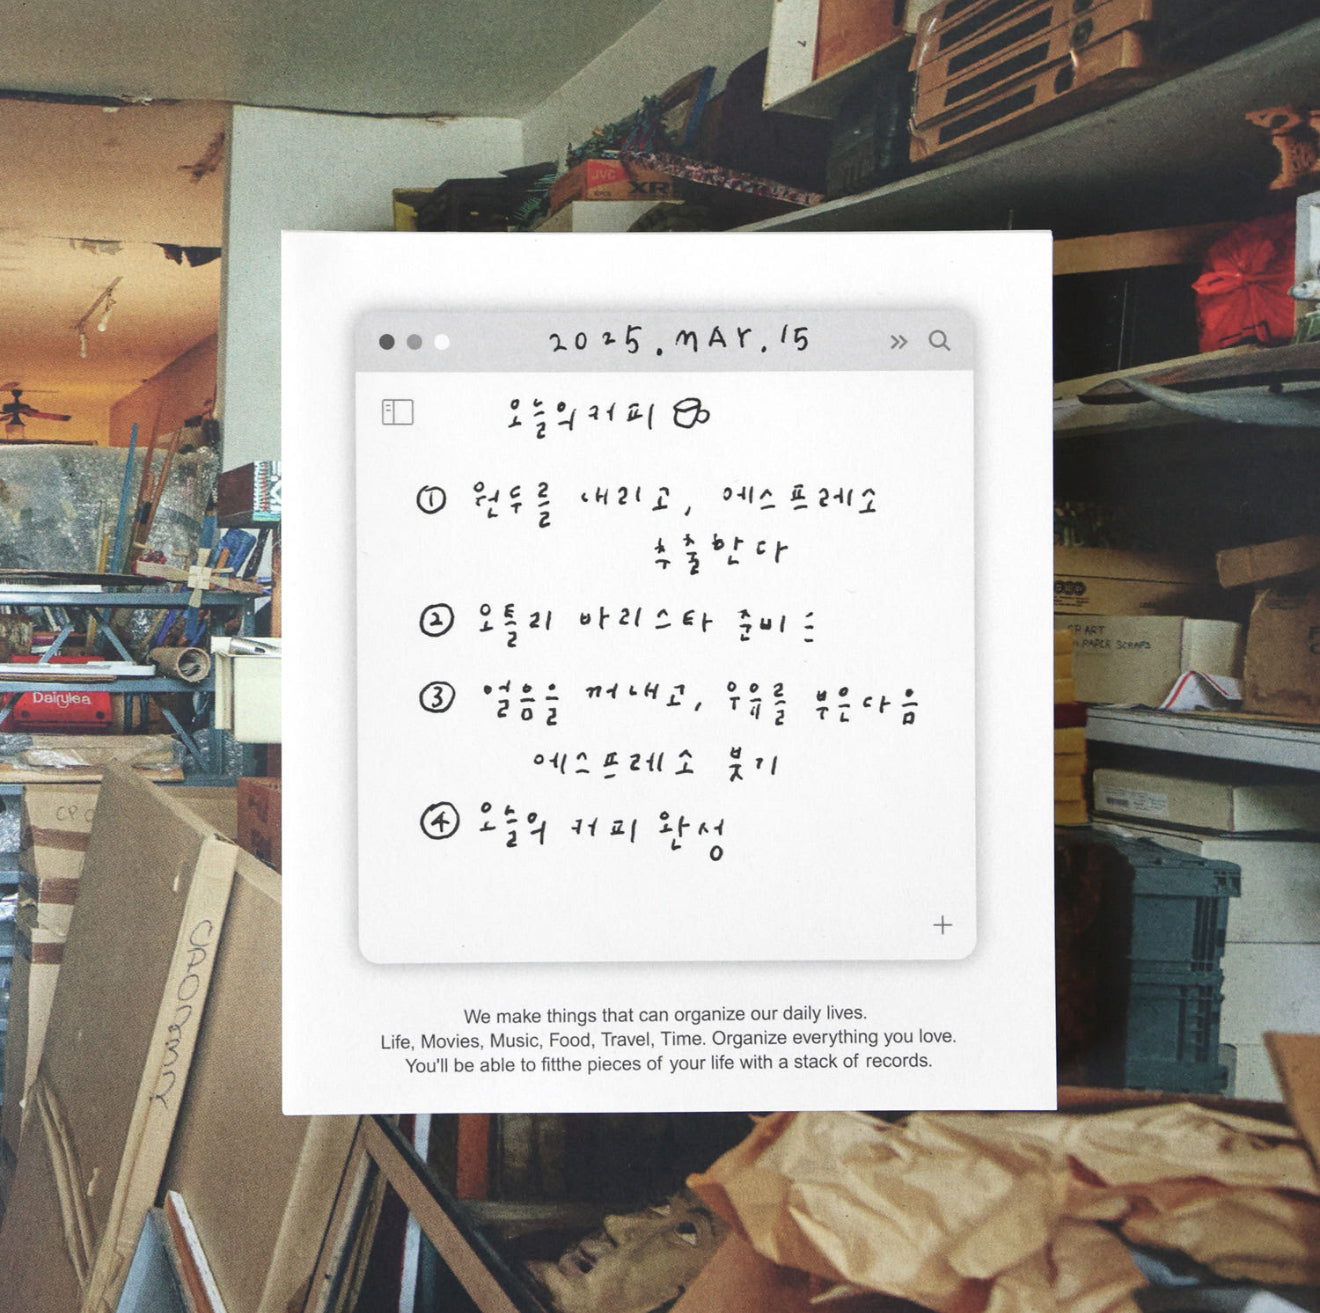 JVC
XR
2025.MAY.15
오늘의 커피
① 원두를 내리고, 에스프레소
추출한다
② 오틀리 바리스타 준비는
③ 얼음을 꺼내고, 우유를 부은다음
에스프레소 붓기
④ 오늘의 커피 완성
We make things that can organize our daily lives.
Life, Movies, Music, Food, Travel, Time. Organize everything you love.
You'll be able to fitthe pieces of your life with a stack of records.
Dairylea
PAPER SCRAPS